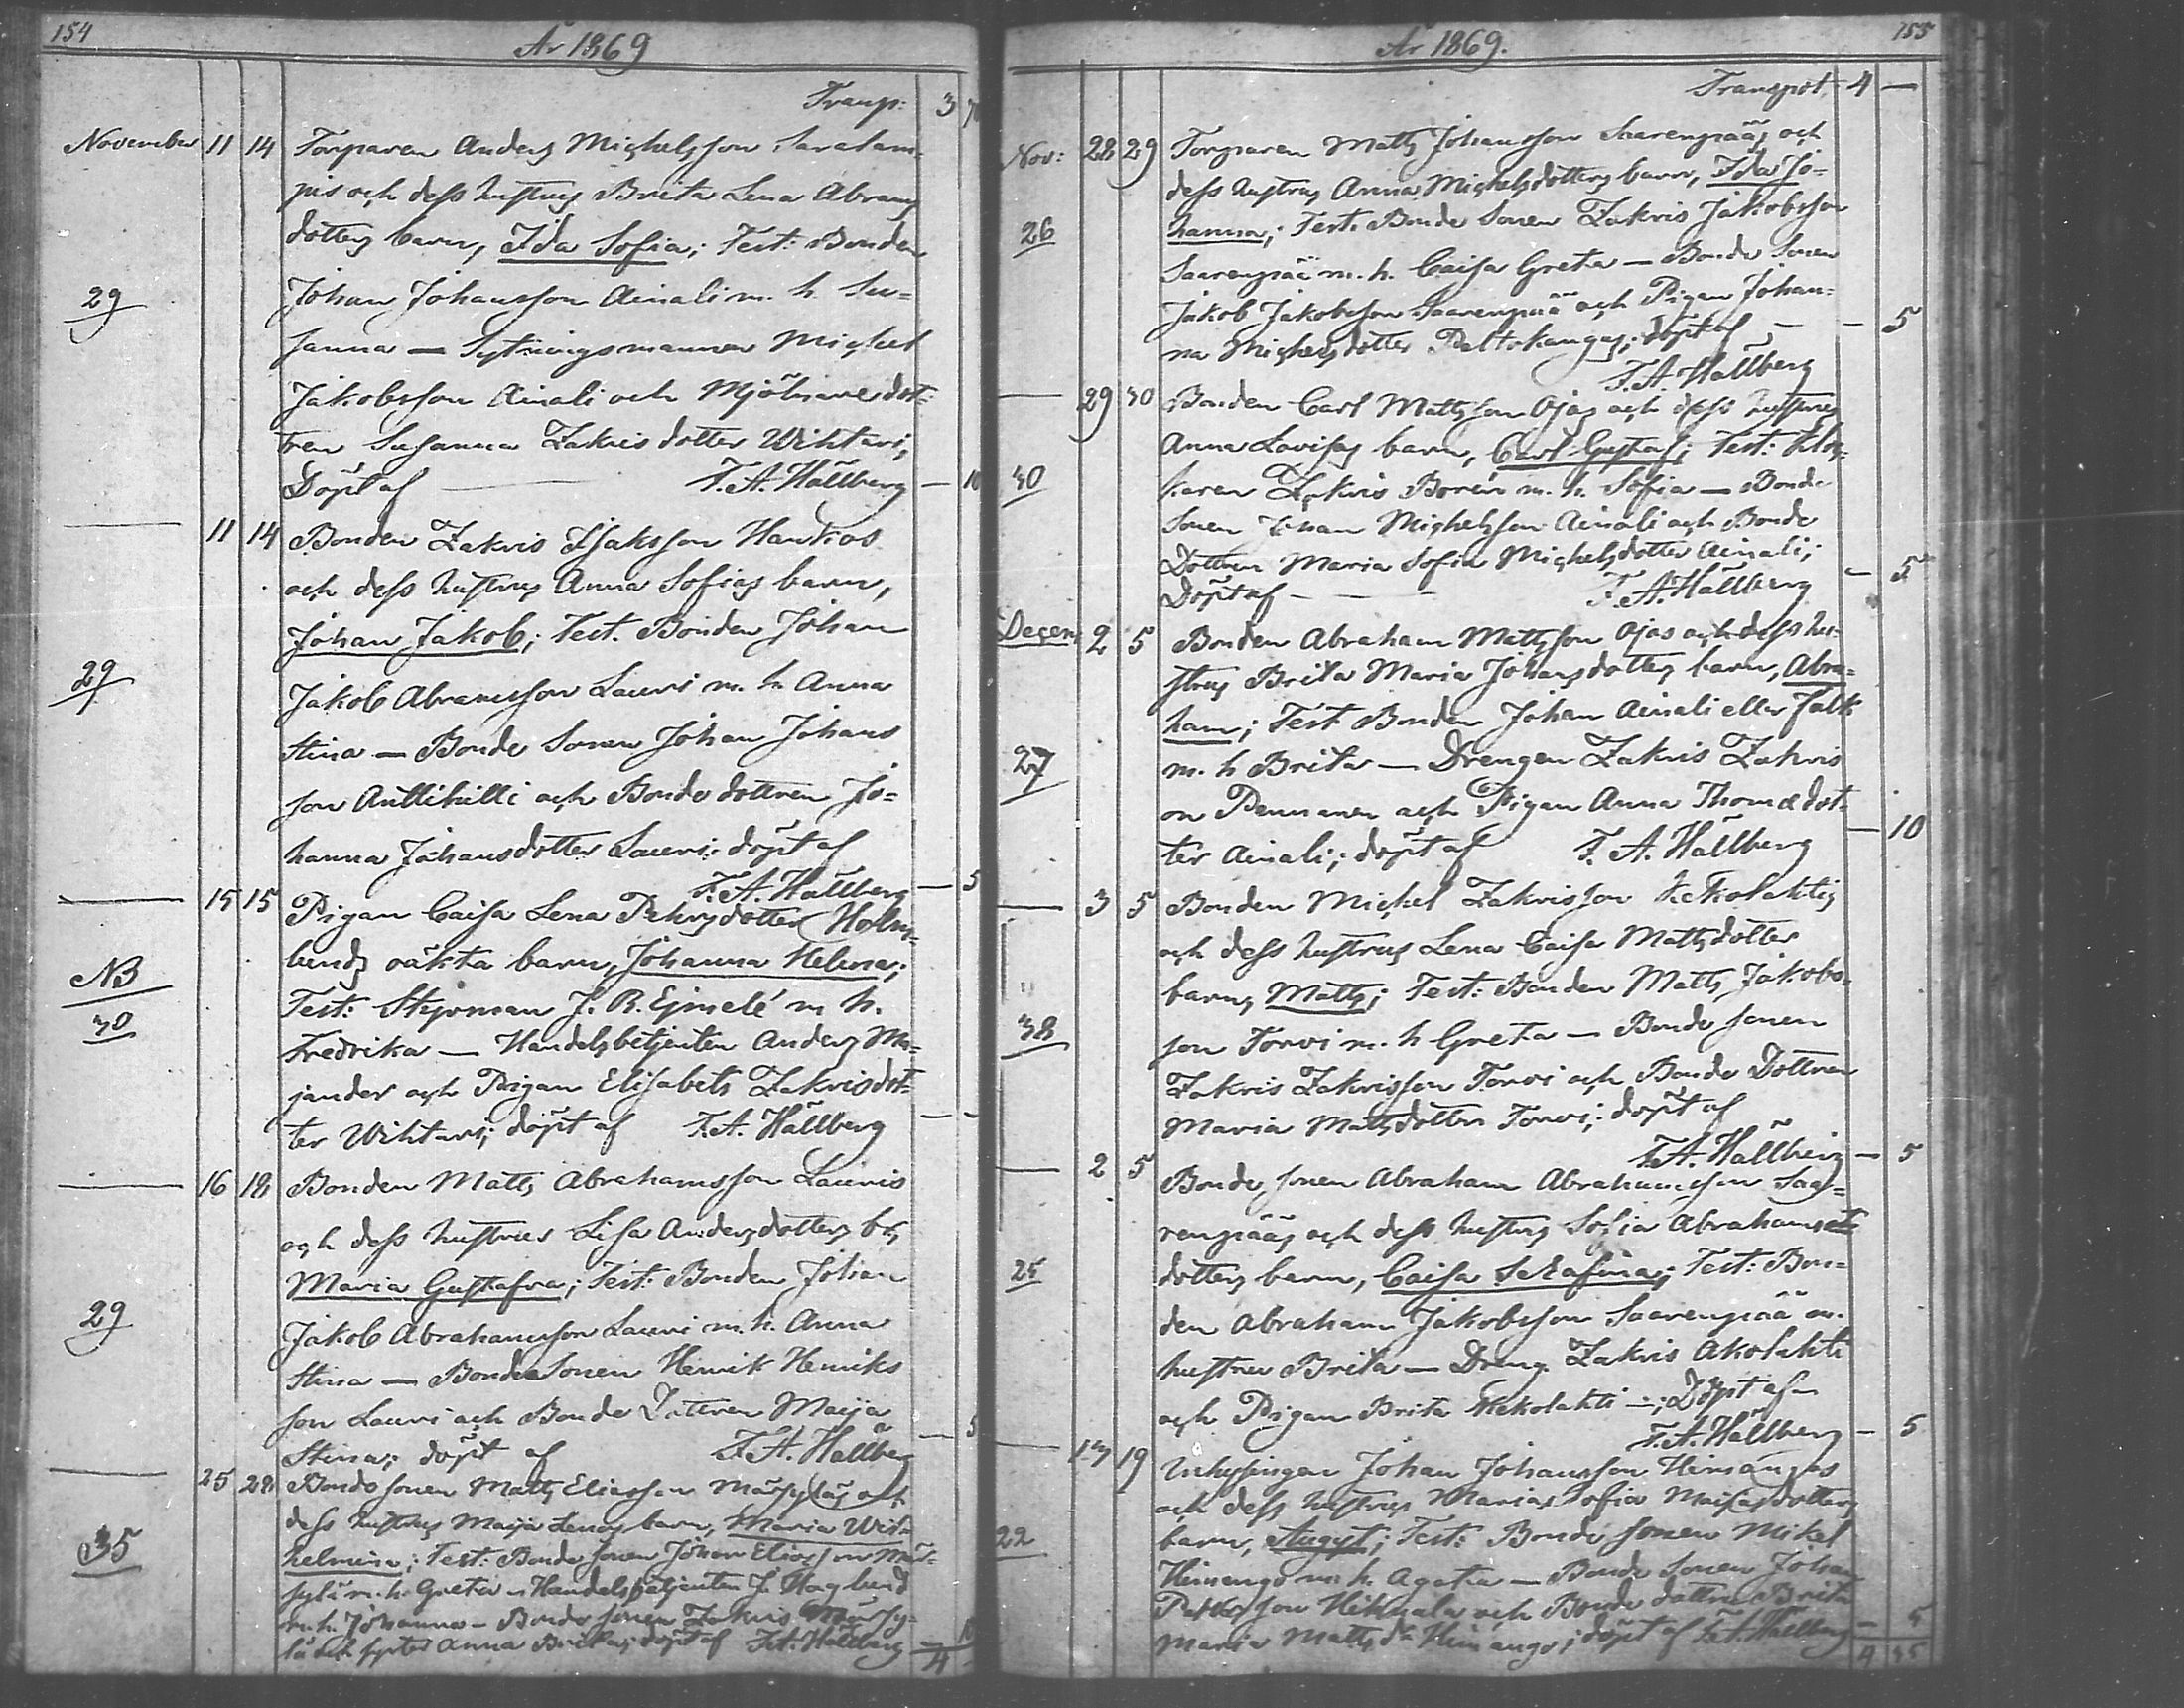 154
År 1869
Transp: 3
November 11 14 Torparen Anders Michelsson Saralam-
pis och dess hustrus Brita Lena Abrams
dotters barn, Ida Sofia; Test: Bonden
29 Johan Johansson Ainali m. h. Su-
sanna — Sytningsmannen Michel
Jakobsson Ainali och Mjölnaredot-
tren Susanna Zakrisdotter Wihtari;
Döpt af — F. A. Hällberg — 10
— 11 14 Bonden Zakris Isaksson Haukos
och dess hustrus Anna Sofias barn,
Johan Jakob; Test. Bonden Johan
29 Jakob Abramsson Lauri m. h. Anna
Stina — Bonde Sonen Johan Johans
son Anttihilli och Bonde dottren Jo-
hanna Johansdotter Lauri; döpt af
F. A. Hällberg — 5
— 15 15 Pigan Caisa Lena Pehrsdotter Holm-
lunds oäkta barn, Johanna Helena;
NB Test: Styrman J. R. m. h.
30 Fredrika — Handelsbetjenten Anders Ma-
jander och Pigan Elisabets Zakrisdot-
ter Wihtari; döpt af F. A. Hällberg — —
— 16 18 Bonden Matts Abrahamsson Lauris
och dess hustrus Lisa Andersdotters b
Maria Gustafva; Test: Bonden Johan
29 Jakob Abrahamsson Lauri m. h. Anna
Stina — BondeSonen Henrik Henriks
son Lauri och Bonde Dottren Maija
Stina; döpt af F. A. Hällberg — 5
— 25 28 Bondesonen Matts Eliasson Märsyläs och
dess hustrus Maija Lenas barn, Maria Wil-
35 helmina; Test: Bonde Sonen Johan Eliasson Mär-
sylä m. h. Greta — Handelsbetjenten J. Haglund
m. h. Johanna — Bonde Sonen Zakris Märsy-
lä och syster Anna Brita; döpt af F. A. Hällberg — 10
4
155
År 1869.
Transport, 4 —
Nov: 28 29 Torparen Matts Johansson Saarenpääs och
dess hustrus Anna Michelsdotters barn, Ida Jo-
26 hanna; Test: Bonde Sonen Zakris Jakobsson
Saarenpää m. h. Caisa Greta — Bonde Sonen
Jakob Jakobsson Saarenpää och Pigan Johan-
na Michelsdotter Paltokangas; döpt af — 5
F. A. Hällberg
— 29 30 Bonden Carl Mattsson Ojas och dess hustrus
Anna Lovisas barn, Carl Gustaf; Test: Kloc-
30 karen Zakris Borén m. h. Sofia — Bonde
Sonen Johan Michelsson Ainali och Bonde
Dottren Maria Sofia Michelsdotter Ainali;
Döpt af — F. A. Hällberg — 5
Decem 2 5 Bonden Abraham Mattsson Ojas och dess hu-
strus Brita Maria Johansdotters barn, Abra-
ham; Test: Bonden Johan Ainali eller Falk
27 m. h Brita — Drengen Zakris Zakris
on Pennanen och Pigan Anna Thomædot-
ter Ainali; döpt af F. A. Hällberg — 10
— 3 5 Bonden Michel Zakrisson Kekolahtis
och dess hustrus Lena Caisa Mattsdotter
barn, Matts; Test: Bonden Matts Jakobs-
38 son Torvi m. h Greta — Bonde sonen
Zakris Zakrisson Torvi och Bonde Dottren
Maria Mattsdotter Torvi; döpt af
F. A. Hällberg — 5
— 2 5 Bonde sonen Abraham Abrahamsson Saa-
renpääs och dess hustrus Sofia Abrahams
25 dotters barn, Caisa Serafina; Test: Bon-
den Abraham Jakobsson Saarenpää m.
hustru Brita — Dreng. Zakris Akolahti
och Pigan Brita Kekolahti —; Döpt af
F. A. Hällberg — 5
— 13 19 Inhysingen Johan Johansson Himangos
och dess hustrus Marias Sofia dotters
22 barn, August; Test: Bonde sonen Mikel
Himango m h. Agata — Bonde Sonen Johan
son och Bonde dottren Brita
Maria Matts dr Himango; döpt af F. A. Hällberg — 5
4 35